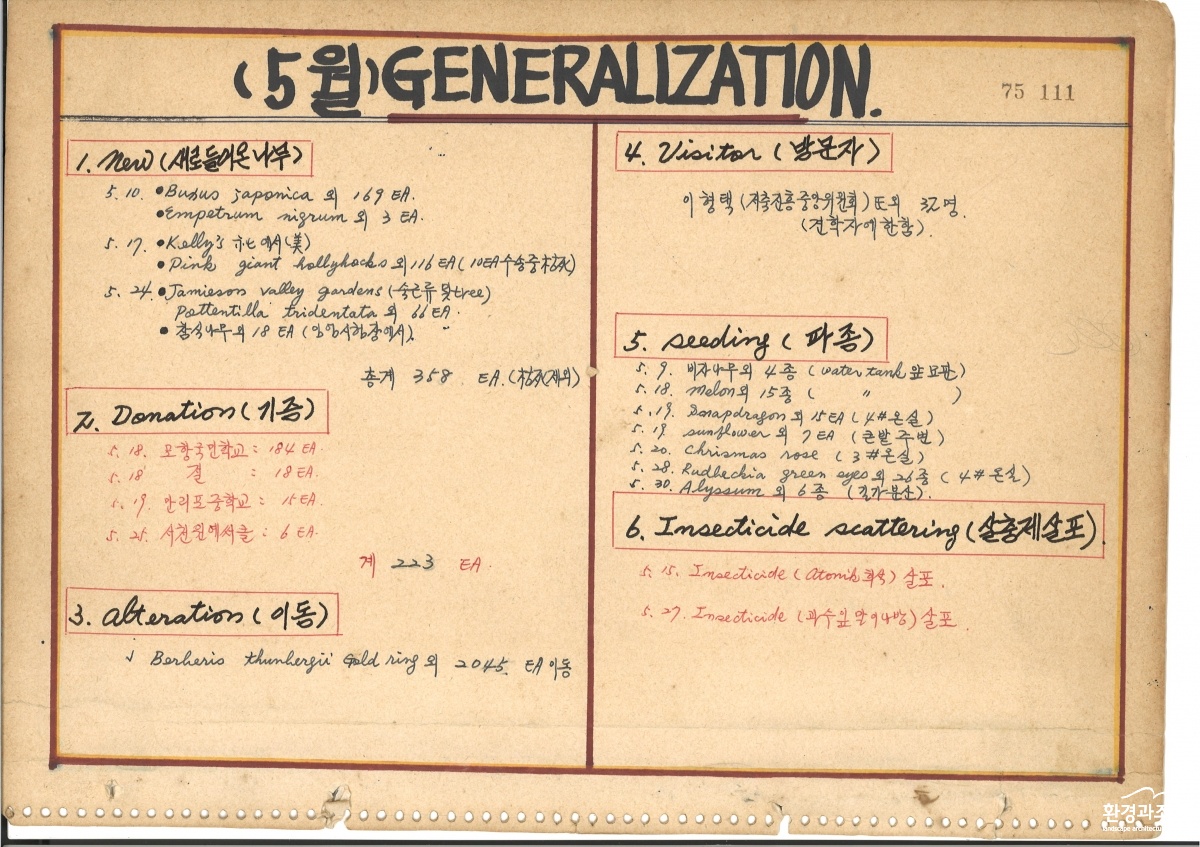 (5월) GENERALIZATION.
75 111
1. New (새로들어온 나무)
5. 10. ● Buxus japonica 외 169 EA.
● Empetrum nigrum 외 3 EA.
5. 17. ● Kelly's 社에서 (美)
● Pink giant hollyhocks 외 116 EA (10EA 수송중 枯死)
5. 24. ● Jamieson valley gardens (숙근류 및 tree)
Pottentilla tridentata 외 66 EA.
● 참식나무외 18 EA
총계 358 EA. (枯死제외)
2. Donation (기증)
5. 18. 모항국민학교 : 184 EA.
5. 18 결 : 18 EA.
5. 19. 만리포중학교 : 15 EA.
5. 25. 서천원예서클 : 6 EA.
계 223 EA.
3. Alteration (이동)
Berberis thunbergii Gold ring 외 2045. EA 이동
4. Visitor (방문자)
이형택 (저축진흥중앙위원회) 氏외 32명.
(견학자에 한함).
5. Seeding (파종)
5. 9. 비자나무외 4종 (water tank 앞 묘판)
5. 18. Melon외 15종 ( 〃 )
5. 19. Snapdragon 외 15 EA (4# 온실)
5. 19 sunflower 외 7 EA (큰밭 주변)
5. 20. Chrismas rose (3# 온실)
5. 28. Rudbeckia green eyes 외 26종 (4# 온실)
5. 30. Alyssum 외 6종
6. Insecticide scattering (살충제살포).
5. 15. Insecticide (Atonik 희석) 살포.
5. 27. Insecticide 살포.
환경과조
landscape architectu